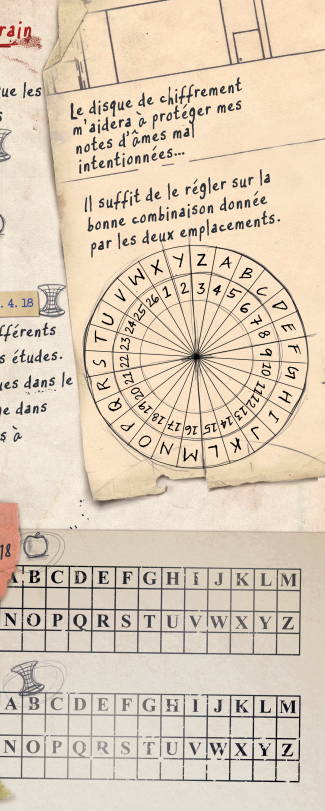 rain
ue les
Le disque de chiffrement
m'aidera à protéger mes
notes d'âmes mal
intentionnées...
Il suffit de le régler sur la
bonne combinaison donnée
par les deux emplacements.
Z A B C D E F G H I J K L M N O P Q R S T U V W X Y
3 4 5 6 7 8 9 10 11 12 13 14 15 16 17 18 19 20 21 22 23 24 25 26 1 2
. 4. 18
fférents
s études.
ues dans le
e dans
s à
18
A B C D E F G H I J K L M
N O P Q R S T U V W X Y Z
A B C D E F G H I J K L M
N O P Q R S T U V W X Y Z